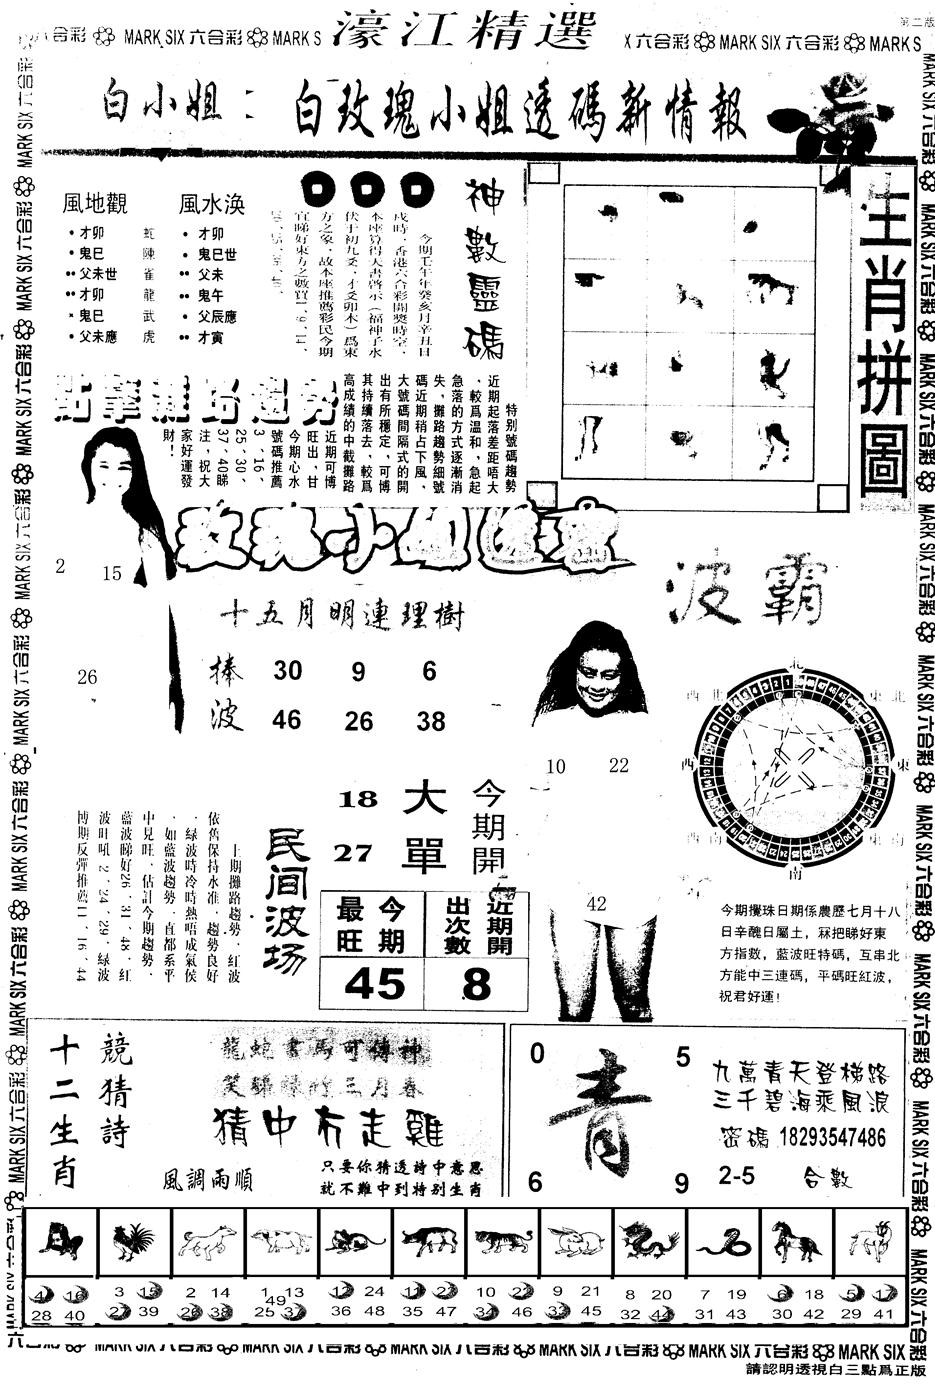 第二版
濠江精選
六合彩 MARK SIX 六合彩 MARK S
X 六合彩 MARK SIX 六合彩 MARK S
白小姐：白玫瑰小姐透碼新情報
風地觀
•才卯 蛇
•鬼巳 陳
••父未世 雀
••才卯 龍
×鬼巳 武
•父未應 虎
風水渙
•才卯
•鬼巳世
••父未
••鬼午
•父辰應
••才寅
神數靈碼
今期壬午年癸亥月辛丑日
戌時，香港六合彩開獎時空，
本座算得天書啓示（福神子水
伏于初九爻，才爻卯木）爲東
方之象，故本座推薦彩民今期
宜睇好東方之數買1、9、11、
生肖拼圖
點擊攤路趨勢
特别號碼趨勢
近期起落差距唔大
、較爲溫和，急起
急落的方式逐漸消
失，攤路趨勢細號
碼近期稍占下風，
大號碼間隔式的開
出有所穩定，可博
其持續落去，較爲
高成績的中截攤路
近期可博
旺出，甘
今期心水
號碼推薦
3、16、
25、30、
37、40睇
注，祝大
家好運發
財！
2 15
26
十五月明連理樹
捧 30 9 6
波 46 26 38
波霸
10 22
42
北
東北
東
東南
南
西南
西
西北
今期開
大 18
單 27
今期最旺
45
近期開出次數
8
民间波场
上期攤路趨勢，紅波
依舊保持水准，趨勢良好
，緑波時冷時熱唔成氣候
，如藍波趨勢，直都系平
中見旺，估計今期趨勢，
藍波睇好26、31、48，紅
波旺吼2、24、29，緑波
博期反彈推薦11、16、44
今期攪珠日期係農歷七月十八
日辛醜日屬土，冧把睇好東
方指數，藍波旺特碼，互串北
方能中三連碼，平碼旺紅波，
祝君好運！
十二生肖
競猜詩
龍蛇書馬可傳神
猜中冇走雞
風調雨順
只要你猜透詩中意思
就不難中到特别生肖
0 5
青
6 9
九萬青天登梯路
三千碧海乘風浪
密碼 18293547486
2-5 合數
4 16 28 40
3 15 27 39
2 14 26 38
1 13 49 25 37
12 24 36 48
11 23 35 47
10 22 34 46
9 21 33 45
8 20 32 44
7 19 31 43
6 18 30 42
5 17 29 41
六合彩 MARK SIX 六合彩 MARK SIX 六合彩 MARK SIX 六合彩 MARK SIX 六合彩 MARK SIX 六合彩 MARK SIX
請認明透視白三點爲正版